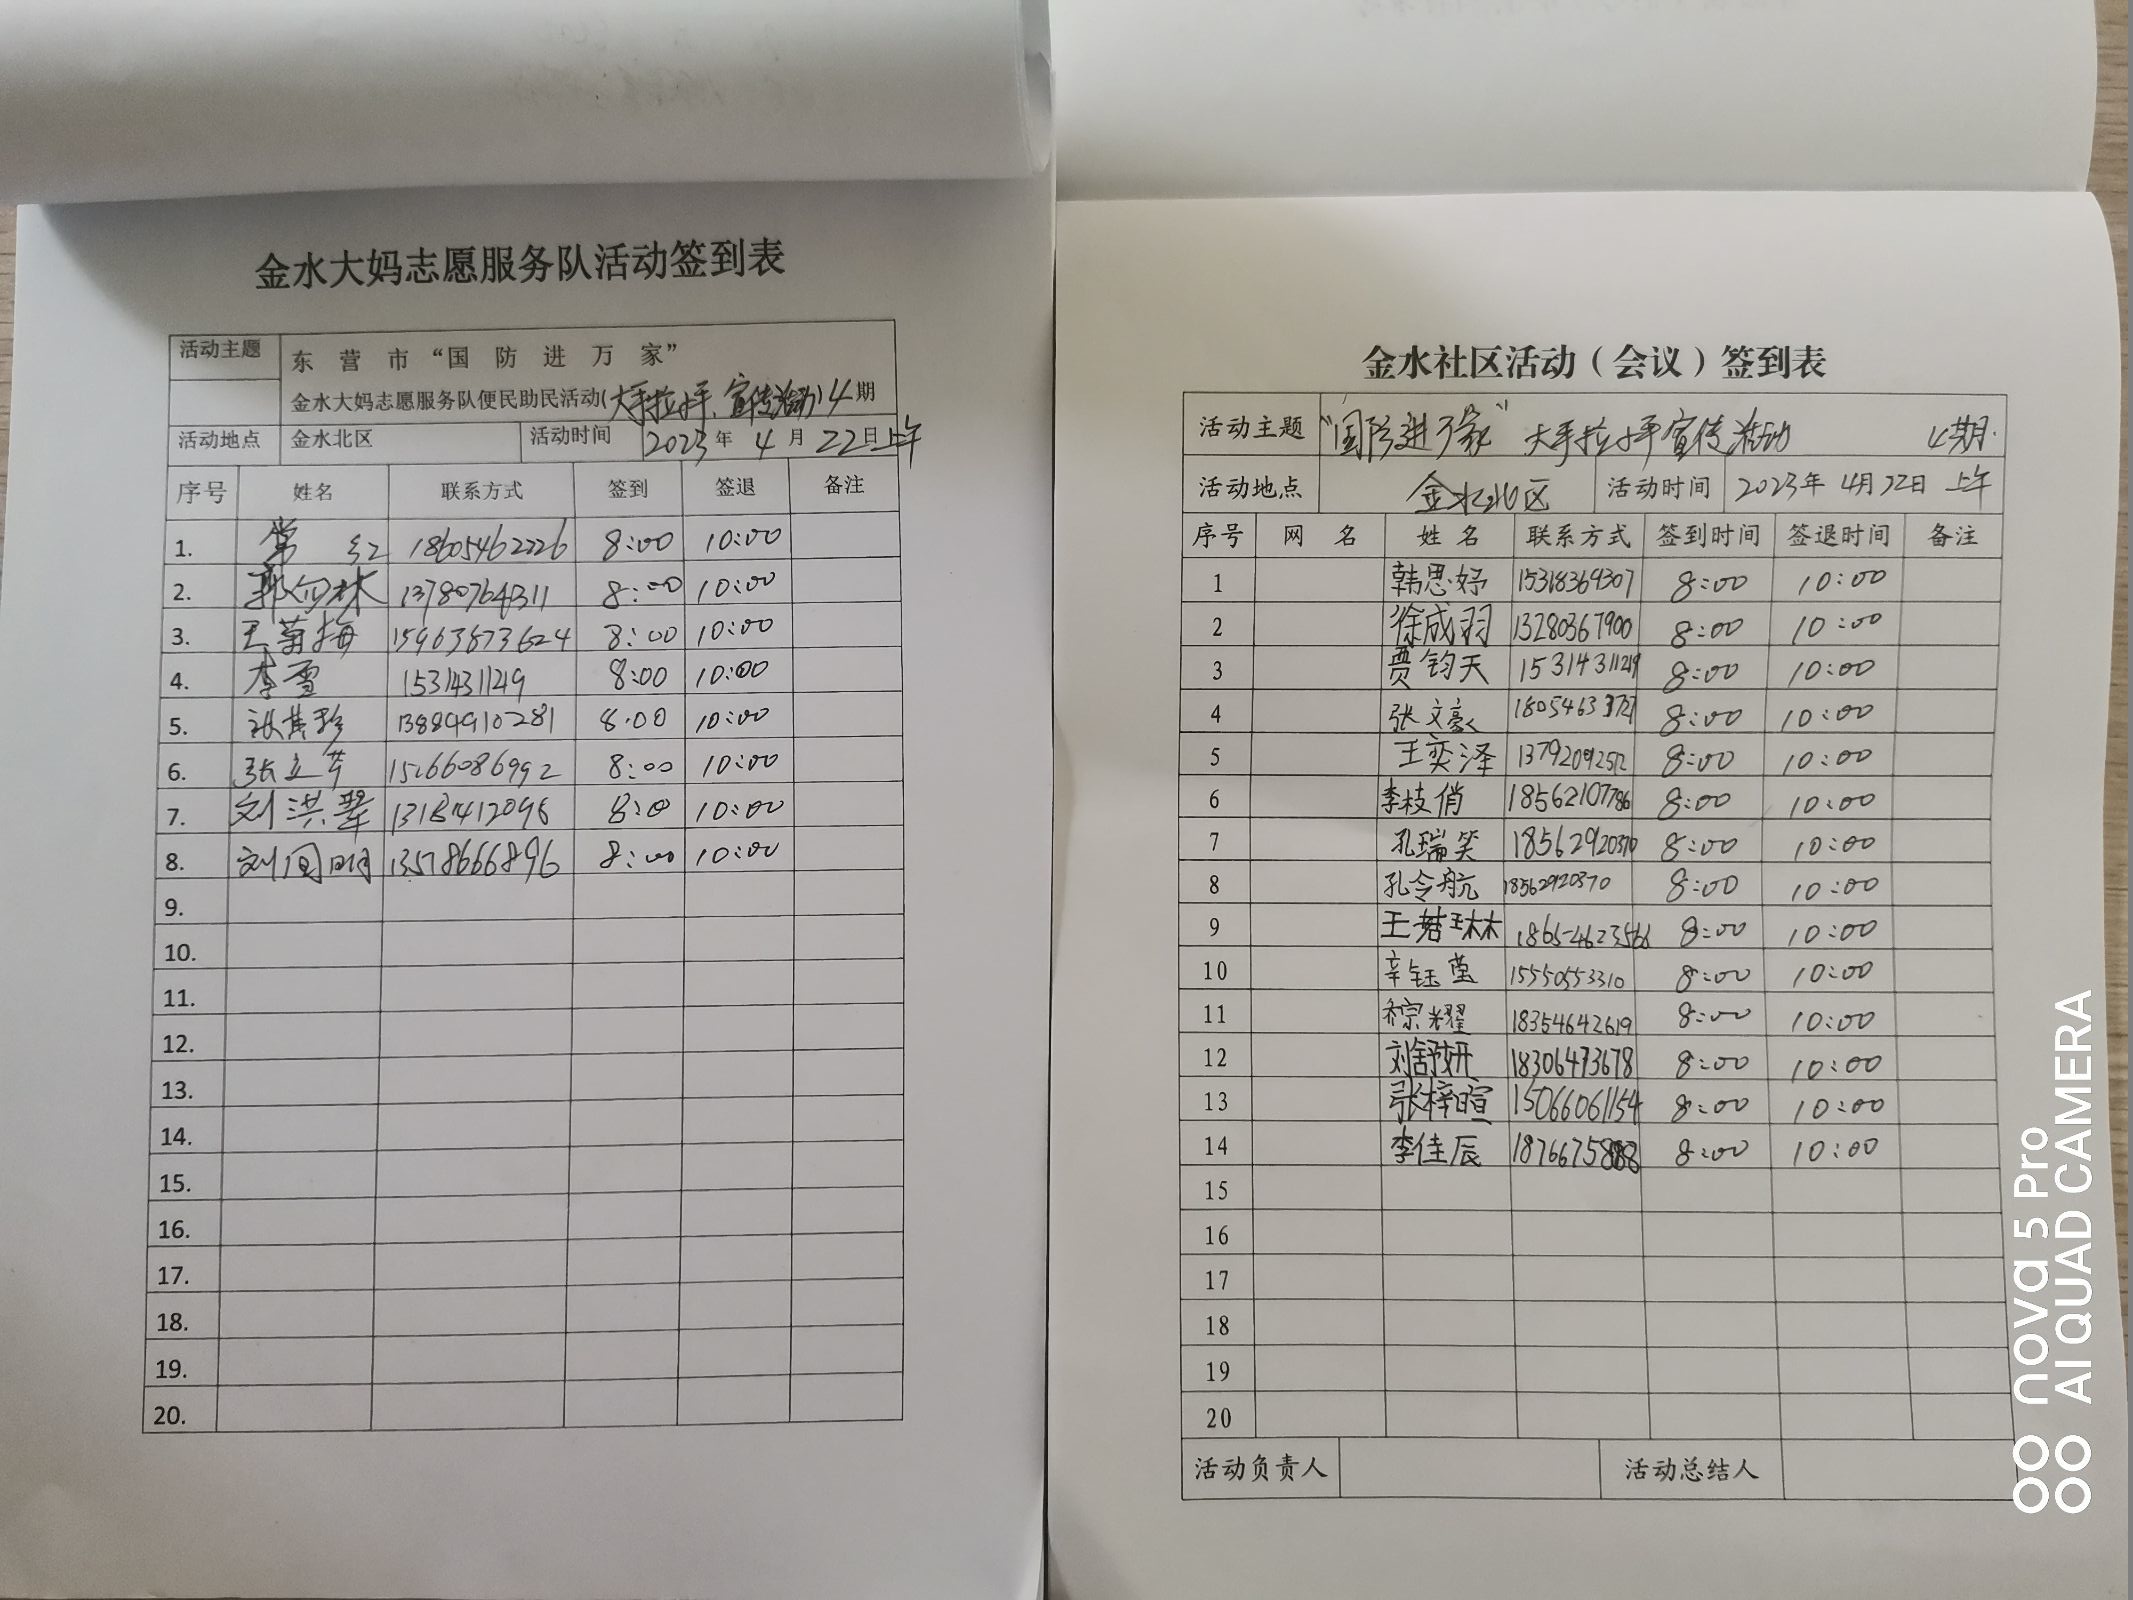 金水大妈志愿服务队活动签到表
活动主题 东营市“国防进万家”
金水大妈志愿服务队便民助民活动(大手拉小手、宣传活动)4期
活动地点 金水北区 活动时间 2023年4月22日上午
序号 姓名 联系方式 签到 签退 备注
1. 常红 18605462226 8:00 10:00
2. 13780764311 8:00 10:00
3. 王菊梅 15963873624 8:00 10:00
4. 李雪 1531431149 8:00 10:00
5. 13884910281 8.00 10:00
6. 张立芹 15266086992 8:00 10:00
7. 刘洪翠 13181412096 8:0 10:00
8. 13578666896 8:00 10:00
9.
10.
11.
12.
13.
14.
15.
16.
17.
18.
19.
20.
金水社区活动（会议）签到表
活动主题 “国防进万家” 大手拉小手宣传活动 4期.
活动地点 金水北区 活动时间 2023年4月22日 上午
序号 网名 姓名 联系方式 签到时间 签退时间 备注
1 韩思妤 15318364307 8:00 10:00
2 徐成羽 13280367900 8:00 10:00
3 贾钧天 15314311249 8:00 10:00
4 张文豪 8:00 10:00
5 王奕泽 8:00 10:00
6 李枝俏 18562107786 8:00 10:00
7 孔瑞笑 18562920370 8:00 10:00
8 孔令航 18562920370 8:00 10:00
9 王若琳 8:00 10:00
10 辛钰莹 15550553310 8:00 10:00
11 18354642619 8:00 10:00
12 刘舒妍 18306473678 8:00 10:00
13 张梓暄 15066061154 8:00 10:00
14 李佳辰 8:00 10:00
15
16
17
18
19
20
活动负责人 活动总结人
nova 5 Pro
AI QUAD CAMERA